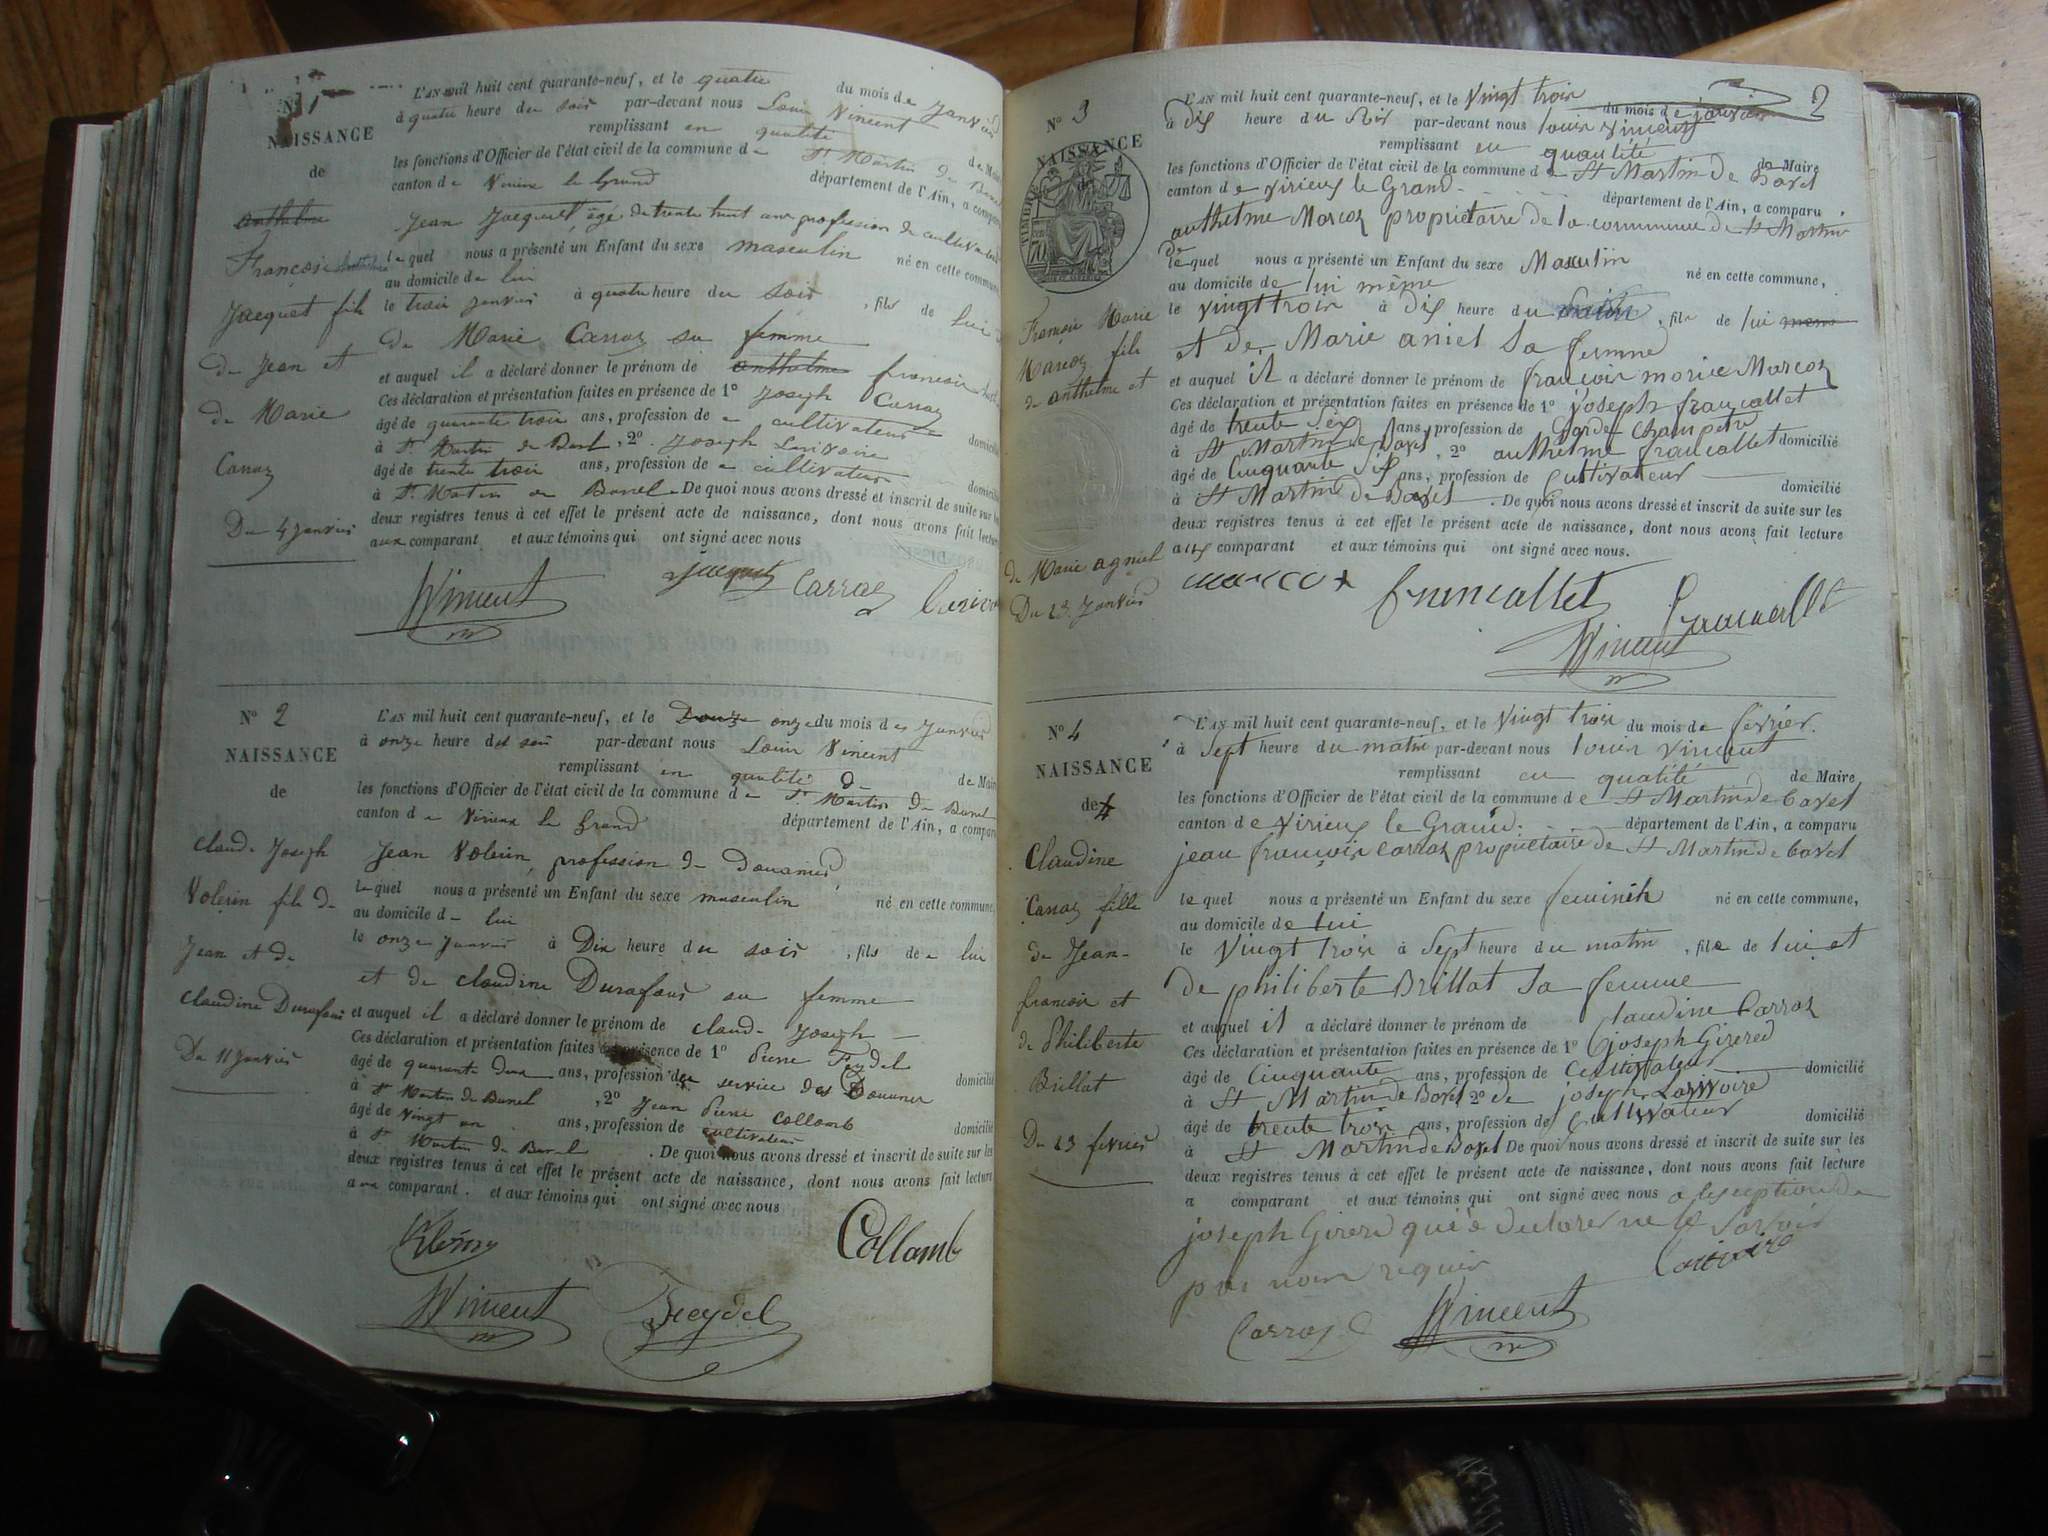 N° 1
NAISSANCE
de
anthelme
François
Jacquet fils
de Jean et
de Marie
Carraz
Du 4 Janvier
L'AN mil huit cent quarante-neuf, et le quatre du mois de Janvier
à quatre heure du soir par-devant nous Louis Vincent
remplissant en qualité de Maire
les fonctions d'Officier de l'état civil de la commune de St Martin de Bavel
canton de Virieu le Grand département de l'Ain, a comparu
Jean Jacquet âgé de trente huit ans profession de cultivateur
lequel nous a présenté un Enfant du sexe masculin né en cette commune,
au domicile de lui
le trois janvier à quatre heure du soir, fils de lui
de Marie Carraz sa femme
et auquel il a déclaré donner le prénom de anthelme françois
Ces déclaration et présentation faites en présence de 1° Joseph Carraz
âgé de quarante trois ans, profession de cultivateur domicilié
à St Martin de Bavel, 2° Joseph Larivoire
âgé de trente trois ans, profession de cultivateur domicilié
à St Martin de Bavel. De quoi nous avons dressé et inscrit de suite sur les
deux registres tenus à cet effet le présent acte de naissance, dont nous avons fait lecture
aux comparant et aux témoins qui ont signé avec nous
Vincent Jacquet Carraz
N° 2
NAISSANCE
de
Claude Joseph
Volerin fils de
Jean et de
Claudine Durafour
Du 11 Janvier
L'AN mil huit cent quarante-neuf, et le Douze onze du mois de Janvier
à onze heure du soir par-devant nous Louis Vincent
remplissant en qualité de de Maire
les fonctions d'Officier de l'état civil de la commune de St Martin de Bavel
canton de Virieu le Grand département de l'Ain, a comparu
Jean Volerin profession de Douanier,
lequel nous a présenté un Enfant du sexe masculin né en cette commune,
au domicile de lui
le onze Janvier à Dix heure du soir, fils de lui
et de Claudine Durafour sa femme
et auquel il a déclaré donner le prénom de Claude Joseph
Ces déclaration et présentation faites en présence de 1° Pierre Feydel
âgé de quarante deux ans, profession de service des Douanes domicilié
à St Martin de Bavel, 2° Jean Pierre Collomb
âgé de Vingt ans, profession de cultivateur domicilié
à St Martin de Bavel. De quoi nous avons dressé et inscrit de suite sur les
deux registres tenus à cet effet le présent acte de naissance, dont nous avons fait lecture
aux comparant. et aux témoins qui ont signé avec nous
Collomb
Vincent Feydel
2
N° 3
NAISSANCE
TIMBRE
François Marie
Marcoz fils
de anthelme et
de Marie agniel
Du 23 Janvier
L'AN mil huit cent quarante-neuf, et le Vingt trois du mois de janvier
à Dix heure du soir par-devant nous louis vincent
remplissant en quantité de Maire
les fonctions d'Officier de l'état civil de la commune de St Martin De Bavel
canton de Virieux le Grand département de l'Ain, a comparu
anthelme Marcoz propriétaire de la commune de St Martin
de
lequel nous a présenté un Enfant du sexe Masculin né en cette commune,
au domicile de lui même
le vingt trois à Dix heure du matin, fils de lui meme
et de Marie aniel sa femme
et auquel il a déclaré donner le prénom de françois marie Marcoz
Ces déclaration et présentation faites en présence de 1° joseph francallet
âgé de trente six ans, profession de Garde Champetre
à St Martin de Bavel, 2° anthelme francallet domicilié
âgé de Cinquante Six ans, profession de Cultivateur
à St Martin de Bavel. De quoi nous avons dressé et inscrit de suite sur les domicilié
deux registres tenus à cet effet le présent acte de naissance, dont nous avons fait lecture
aux comparant et aux témoins qui ont signé avec nous.
marcoz francallet francallet
Vincent
N° 4
NAISSANCE
de
Claudine
Carraz fille
de Jean-
françois et
de Philiberte
Brillat
Du 23 février
L'AN mil huit cent quarante-neuf, et le Vingt trois du mois de février.
à Sept heure du matin par-devant nous louis vincent
remplissant en qualité de Maire
les fonctions d'Officier de l'état civil de la commune de St Martin de bavel
canton de Virieux le Grand. département de l'Ain, a comparu
jean françois carraz propriétaire de St Martin de bavel
lequel nous a présenté un Enfant du sexe feminin né en cette commune,
au domicile de lui
le Vingt trois à Sept heure du matin, file de lui et
de philiberte Brillat sa femme
et auquel il a déclaré donner le prénom de Claudine Carraz
Ces déclaration et présentation faites en présence de 1° joseph Girerd
âgé de Cinquante ans, profession de Cultivateur domicilié
à St Martin de Bavel 2° de joseph Larivoire
âgé de trente trois ans, profession de Cultivateur domicilié
à St Martin de Bavel De quoi nous avons dressé et inscrit de suite sur les
deux registres tenus à cet effet le présent acte de naissance, dont nous avons fait lecture
a comparant et aux témoins qui ont signé avec nous a lexeption de
joseph Girerd qui a declarer ne le Savoir
pas requis
Larivoire
Carraz Vincent